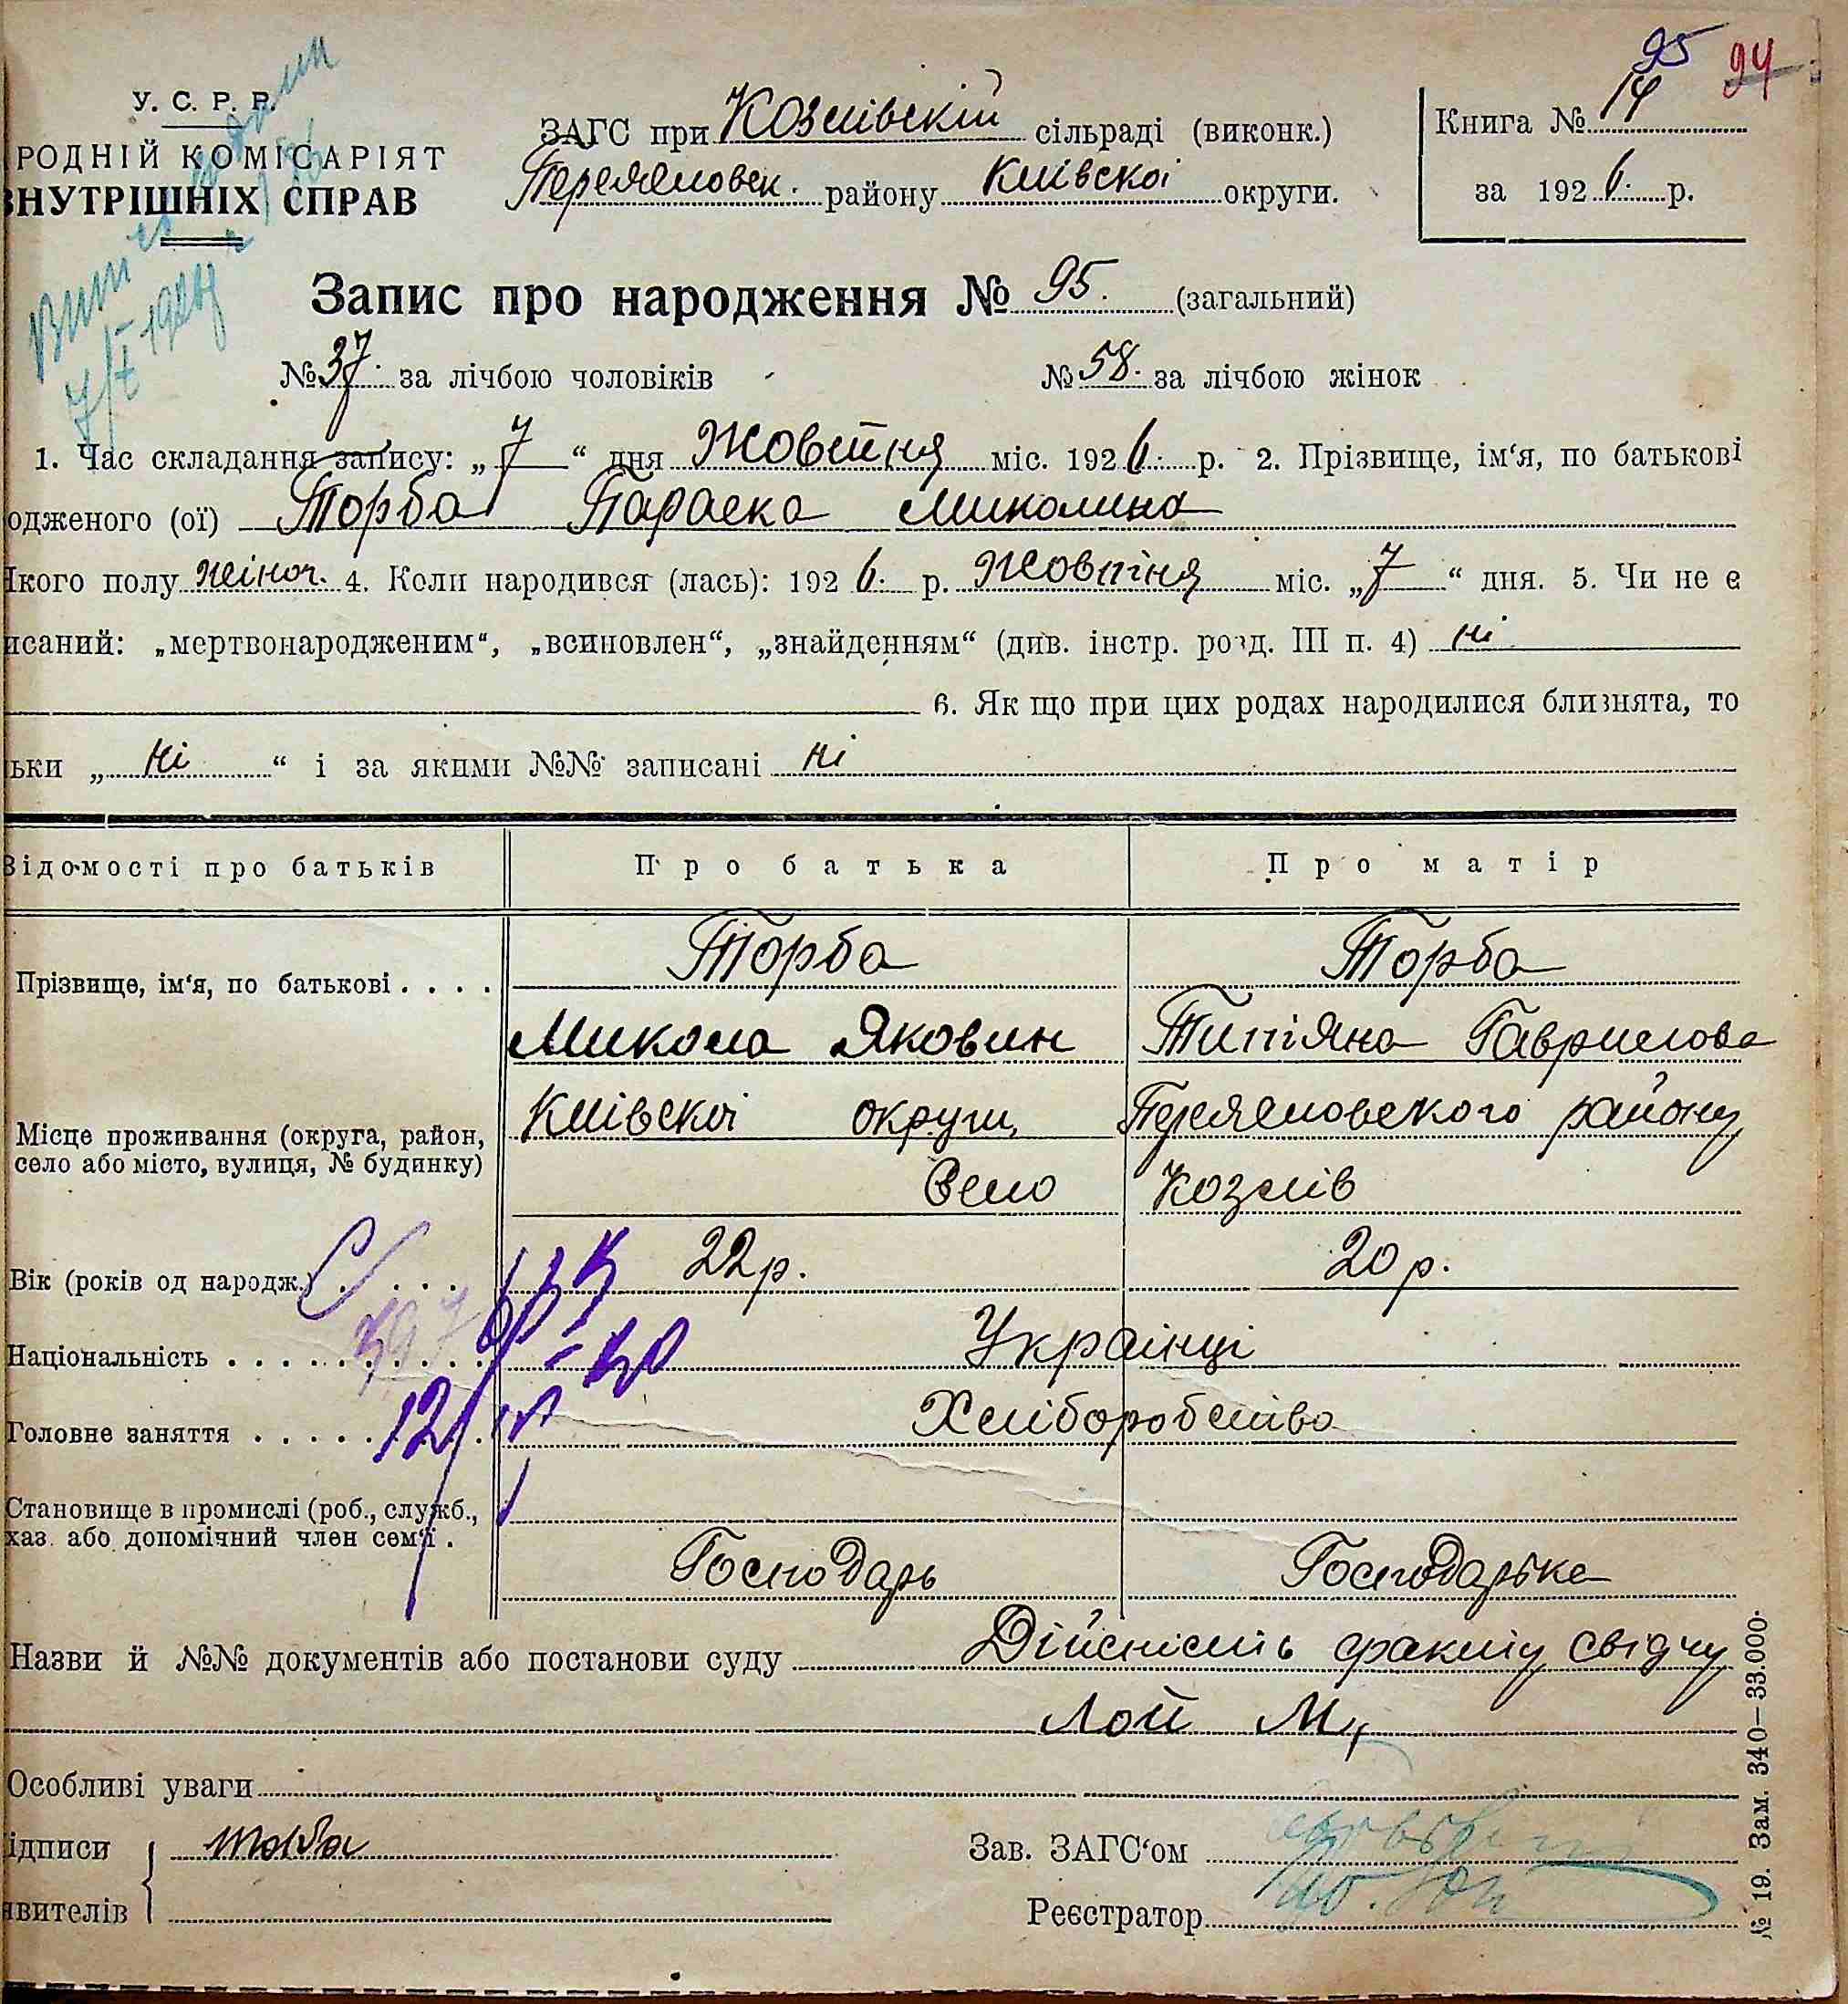 95 94
У. С. Р. Р.
РОДНІЙ КОМІСАРІЯТ
ВНУТРІШНІХ СПРАВ
ЗАГС при Козлівскій сільраді (виконк.)
Переяславск. району Київскоі округи.
Книга № 14
за 1926. р.
Запис про народження № 95. (загальний)
№ 37. за лічбою чоловіків № 58. за лічбою жінок
1. Час складання запису: „7“ дня Жовтня міс. 1926. р. 2. Прізвище, ім‘я, по батькові
одженого (ої) Торба Параска Миколина
якого полу жіноч. 4. Коли народився (лась): 1926. р. Жовтня міс. „7“ дня. 5. Чи не є
исаний: „мертвонародженим“, „всиновлен“, „знайденням“ (див. інстр. розд. III п. 4) ні
6. Як що при цих родах народилися близнята, то
ьки „ні“ і за якими №№ записані ні
Відомості про батьків Про батька Про матір
Прізвище, ім‘я, по батькові . . . . Торба Торба
Микола Яковин Титяна Гаврилова
Місце проживання (округа, район, село або місто, вулиця, № будинку) Київскоі округи, Переяславского району
Село Козлів
Вік (років од народж.) . . . . 22 р. 20 р.
Національність . . . . . . . . . . Украінці
Головне заняття . . . . . . . Хліборобство
Становище в промислі (роб., служб.,
хаз. або допомічний член сем‘ї . Господарь Господарька
Назви й №№ документів або постанови суду Дійсність факту свідчу
Лой М,
Особливі уваги
ідписи
явителів
Зав. ЗАГС‘ом
Реєстратор
№ 19. Зам. 340—33.000.